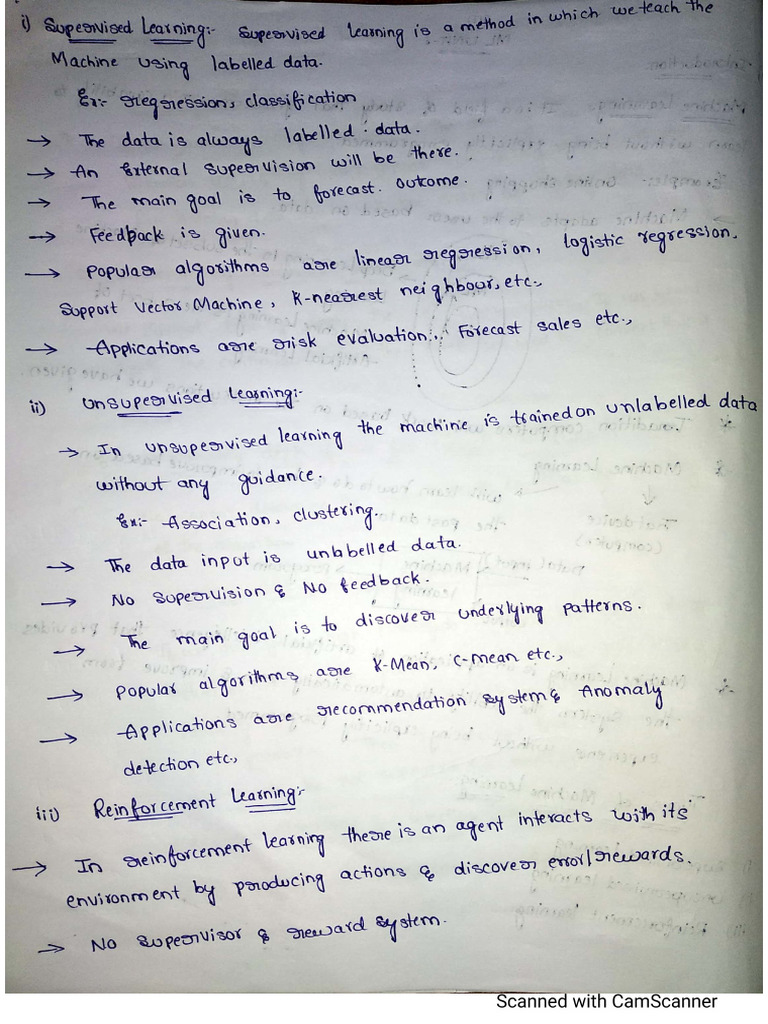 i) Supervised Learning:- Supervised learning is a method in which we teach the
Machine using labelled data.
Ex:- regression, classification
→ The data is always labelled data.
→ An External supervision will be there.
→ The main goal is to forecast outcome.
→ Feedback is given.
→ Popular algorithms are linear regression, logistic regression,
Support Vector Machine, K-nearest neighbour, etc.,
→ Applications are risk evaluation, Forecast sales etc.,
ii) Unsupervised Learning:-
→ In unsupervised learning the machine is trained on unlabelled data
without any guidance.
Ex:- Association, clustering.
→ The data input is unlabelled data.
→ No supervision & No feedback.
→ The main goal is to discover underlying patterns.
→ Popular algorithms are K-Mean, C-mean etc.,
→ Applications are recommendation system & Anomaly
detection etc.,
iii) Reinforcement Learning:-
→ In reinforcement learning there is an agent interacts with its
environment by producing actions & discover error/rewards.
→ No supervisor & reward system.
Scanned with CamScanner